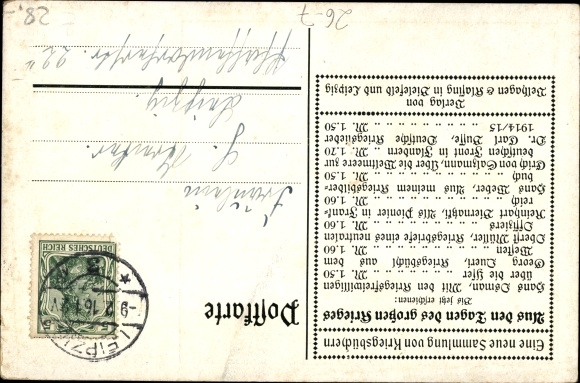 Postkarte
Fräulein
Leipzig
22 II
LEIPZIG
-9.2.16
5
DEUTSCHES REICH
Eine neue Sammlung von Kriegsbüchern
Aus den Tagen des großen Krieges
Bis jetzt erschienen:
Hans Osman, Mit den Kriegsfreiwilligen
über die Yser .. .. .. .. M. 1.50
Georg Queri, Kriegsbüchl aus dem
Westen .. .. .. .. .. M. 1.60
Obest Müller, Kriegsbriefe eines neutralen
Offiziers .. .. .. .. .. M. 1.60
Reinhart Biernatzki, Als Pionier in Frank-
reich .. .. .. .. .. M. 1.60
Hans Weber, Aus meinem Kriegsbilder-
buch .. .. .. .. .. M. 1.50
Erich von Salzmann, Über die Weltmeere zur
deutschen Front in Flandern .. M. 1.70
Dr. Carl Busse, Deutsche Kriegslieder
1914/15 .. .. .. .. .. M. 1.50
Verlag von
Velhagen & Klasing in Bielefeld und Leipzig
26-7
28.-